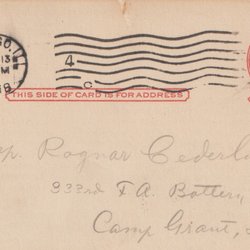 GO, I
13
M
4
THIS SIDE OF CARD IS FOR ADDRESS
Ragnar Cederl
333rd F A. Battery
Camp Grant,